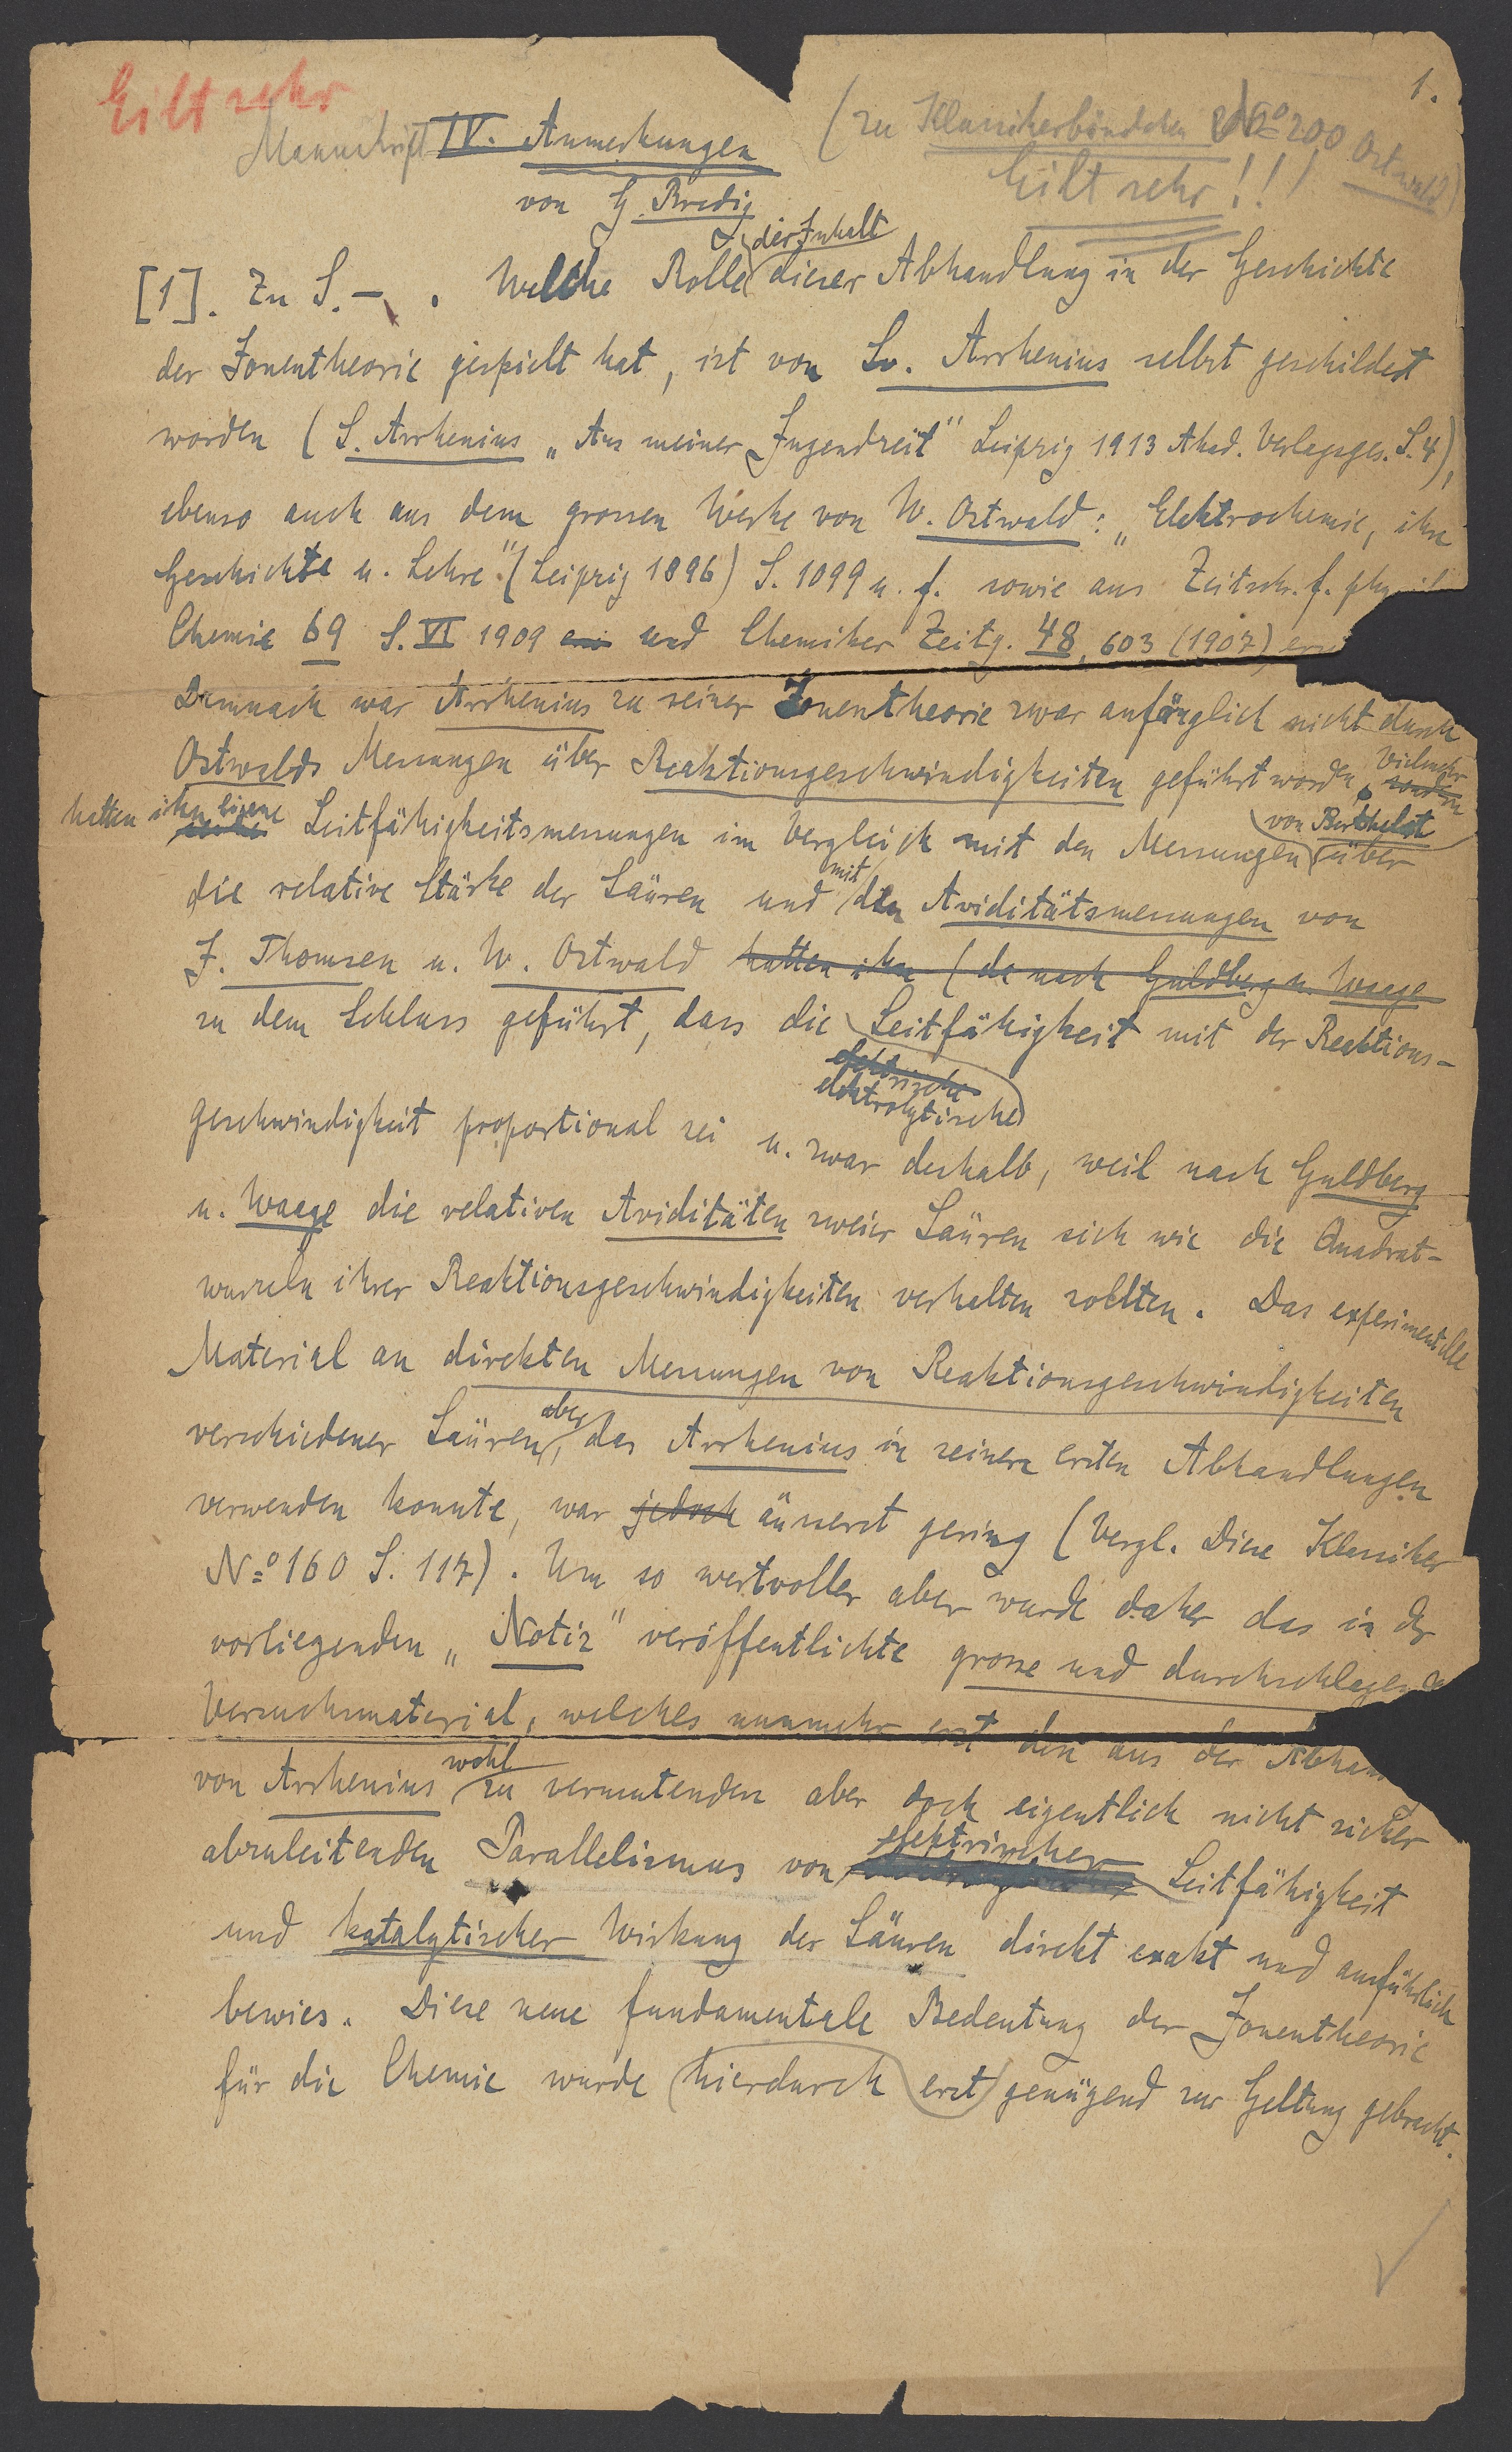 1.
Eilt sehr
Manuskript IV. Anmerkungen (zu Klassikerbändchen No 200 Ostwald)
Eilt sehr!!!
von G. Bredig
der Inhalt
[1]. Zu S. — . Welche Rolle dieser Abhandlung in der Geschichte
der Ionentheorie gespielt hat, ist von Sv. Arrhenius selbst geschildert
worden (S. Arrhenius „Aus meiner Jugendzeit" Leipzig 1913 Akad. Verlagsges. S. 4),
ebenso auch aus dem grossen Werke von W. Ostwald: „Elektrochemie, ihre
Geschichte u. Lehre." (Leipzig 1896) S. 1099 u. f. sowie aus Zeitsch. f. physik
Chemie 69 S. VI 1909 und Chemiker Zeitg. 48, 603 (1907)
Demnach war Arrhenius zu seiner Ionentheorie zwar anfänglich nicht durch
Ostwalds Messungen über Reaktionsgeschwindigkeiten geführt worden, sondern
vielmehr
hatten ihn eigene Leitfähigkeitsmessungen im Vergleich mit den Messungen über
von Berthelot
die relative Stärke der Säuren und mit den Aviditätsmessungen von
J. Thomsen u. W. Ostwald hatten ihn (da nach Guldberg u. Waage
zu dem Schluss geführt, dass die Leitfähigkeit mit der Reaktions-
elektrische
elektrolytische
geschwindigkeit proportional sei u. zwar deshalb, weil nach Guldberg
u. Waage die relativen Aviditäten zweier Säuren sich wie die Quadrat-
wurzeln ihrer Reaktionsgeschwindigkeiten verhalten sollten. Das experimentelle
Material an direkten Messungen von Reaktionsgeschwindigkeiten
verschiedener Säuren, aber das Arrhenius in seinen ersten Abhandlungen
verwenden konnte, war jedoch äusserst gering (Vergl. Diese Klassiker
No 160 S. 117). Um so wertvoller aber wurde daher das in der
vorliegenden „Notiz" veröffentlichte grosse und durchschlagende
Versuchsmaterial, welches nunmehr erst den aus der Abhand
von Arrhenius wohl zu vermutenden aber doch eigentlich nicht sicher
abzuleitenden Parallelismus von elektrischer Leitfähigkeit
und katalytischer Wirkung der Säuren direkt exakt und ausführlich
bewies. Diese neue fundamentale Bedeutung der Ionentheorie
für die Chemie wurde hierdurch erst genügend zur Geltung gebracht.